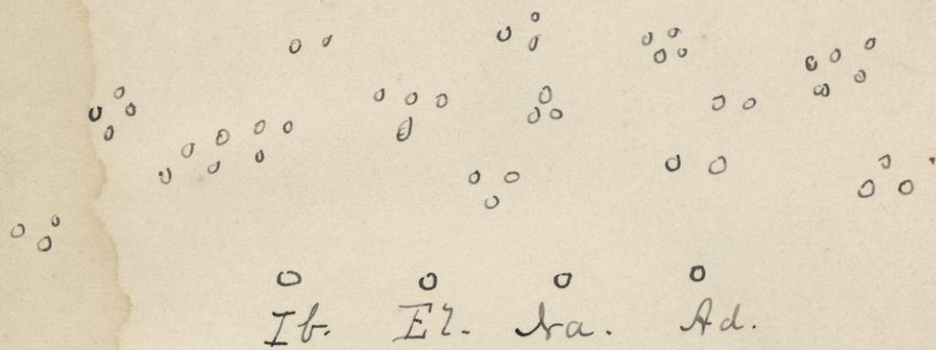 Ib. El. Na. Ad.